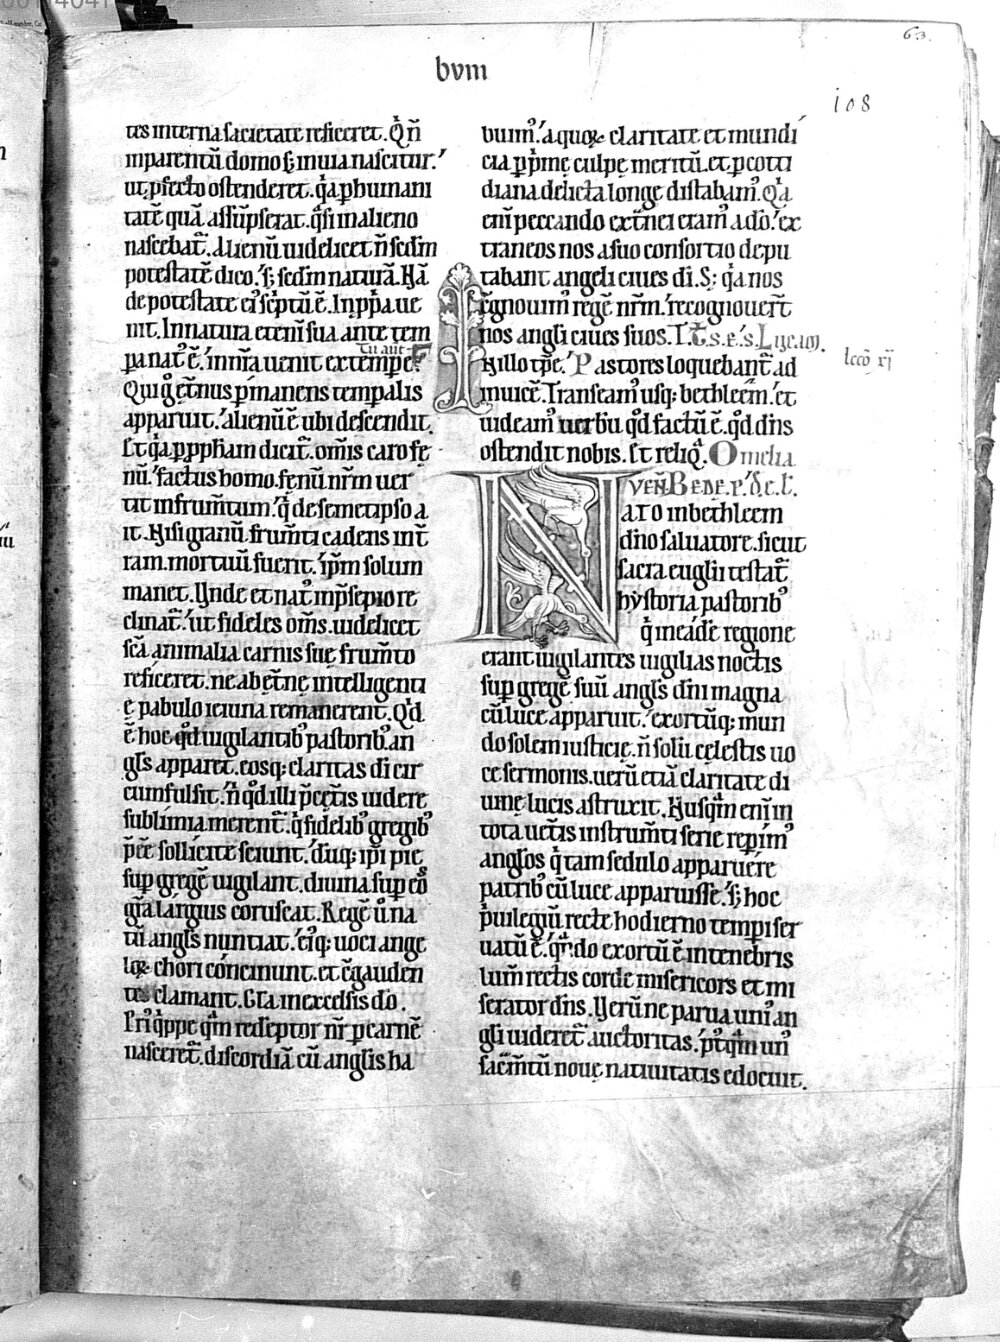 63.
bvm
108
tes interna satietate reficeret. Q̇ n̄
inparentū domo sꝫ inuia nascitur.
ut ꝓfecto ostenderet. q̇a ꝑ humani
tatē quā assūpserat. q̇si in alieno
nascebat᷑. Alienū uidelicet n̄ sc̄dm
potestatē dico. sꝫ sc̄dm naturā. Nā
de potestate ei᷒ sc̄ptū ē. In ꝓpa ue
nit. In natura eteni sua ante tem
pa nat᷒ ē. in nr̄a uenit ex tempe.
Qui g̊ et̄nus ꝑmanens tempalis
apparuit. alienū ē ubi descendit.
Et q̇a ꝑ ꝓpham dicit᷑. omīs caro fe
nū. factus homo. fenū nr̄m uer
tit in frum̄tum. q̇ de semetipso a
it. Nisi granū frum̄ti cadens in t̄
ram. mortuū fuerit. ip̄m solum
manet. Vnde et nat᷒ in p̄sepio re
clinat᷑. ut fideles om̄s. uidelicet
sc̄a animalia carnis sue frum̄to
reficeret. ne ab et̄ne intelligenti
e pabulo ieiuna remanerent. Qd̄
ē hoc qd̄ uigilantib᷒ pastorib᷒ an
gl̄s apparet. eosqꝫ claritas di cir
cumfulsit. n̄ qd̄ illi p̄ cet̄is uidere
sublimia merent᷑. q̇ fidelib᷒ gregib᷒
p̄ee sollicite sciunt. dūqꝫ ip̄i pie
suꝑ gregē uigilant. diuina suꝑ eos
gr̄a largius coruscat. Regē ů na
tū angl̄s nuntiat. ei᷒qꝫ uoci ange
loꝝ chori concinunt. et c̄gauden
tes clamant. Gl̄a in excelsis dō.
Pri᷒ q̇ppe qm̄ redēptor nr̄ ꝑ carnē
nasceret᷑. discordiā cū anglis ha
buim᷒. a quoꝝ claritate et mundi
cia ꝑ p̄me culpe meritū. et ꝑ coti
diana delicta longe distabam᷒. Q̇a
eni peccando ext̄nei eram᷒ a dō. ex
traneos nos a suo consortio depu
tabant angeli ciues di. Sꝫ q̇a nos
c̄gnouim᷒ regē nr̄m. recognouer̄t
nos angli ciues suos.
Illo tp̄e. Pastores loquebant᷑ ad
lecō xj
inuicē. Transeam᷒ usqꝫ bethleēm. et
uideam᷒ uerbū qd̄ factū ē. qd̄ dn̄s
ostendit nobis. Et reliq̇. Omelia
VEN̄ BEDE.
NATO in bethleem
dn̄o saluatore. sicut
sacra euglii testat᷑
hystoria pastorib᷒
q̇ in eadē regione
erant uigilantes uigilias noctis
suꝑ gregē suū angl̄s dn̄i magna
cū luce apparuit. exortūqꝫ mun
do solem iusticie. n̄ solū celestis uo
ce sermonis. uerū etiā claritate di
uine lucis astruxit. Nusqm̄ eni in
tota uet̄is instrum̄ti serie reꝑim᷒
anglos q̇ tam sedulo apparuere
patrib᷒ cū luce apparuisse. sꝫ hoc
ṗuilegiū recte hodierno tempi ser
uatū ē. qn̄do exortū ē in tenebris
lum̄ rectis corde misericors et mi
serator dn̄s. Verū ne parua uni᷒ an
gli uideret᷑ auctoritas. p᷒tqm̄ un᷒
sac̄m̄tū noue natiuitatis edocuit.